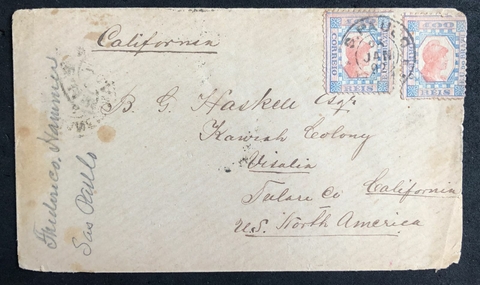 California
S. PAULO
JAN
92
CORREIO
B. G. Haskell Esqr
Kaweah Colony
Visalia
Tulare Co California
U.S. North America
Frederico.
Sao Paulo